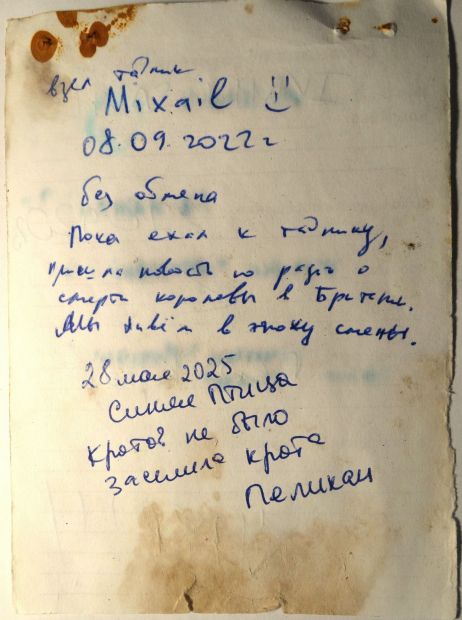 взял тайник
Mixail
08.09.2022 г
без обмена
Пока ехал к тайнику,
пришла новость по радио о
смерти королевы в Британии.
Мы живём в эпоху смены.
28 мая 2025
Синяя Птица
Кротов не было
Заселила крота
Пеликан